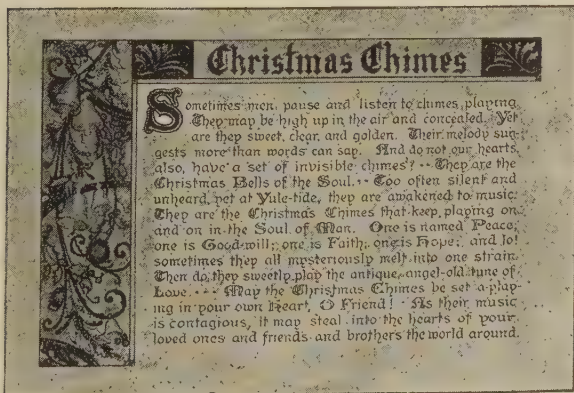 Christmas Chimes
Sometimes men pause and listen to chimes playing.
They may be high up in the air and concealed. Yet
are they sweet, clear, and golden. Their melody sug-
gests more than words can say. And do not our hearts,
also, have a set of invisible chimes? •• They are the
Christmas Bells of the Soul. •• Too often silent and
unheard, yet at Yule-tide, they are awakened to music.
They are the Christmas Chimes that keep playing on
and on in the Soul of Man. One is named Peace;
one is Good-will; one is Faith; one is Hope; and lo!
sometimes they all mysteriously melt into one strain.
Then do they sweetly play the antique, angel-old tune of
Love. ••• May the Christmas Chimes be set a-play-
ing in your own Heart, O Friend! As their music
is contagious, it may steal into the hearts of your
loved ones and friends and brothers the world around.